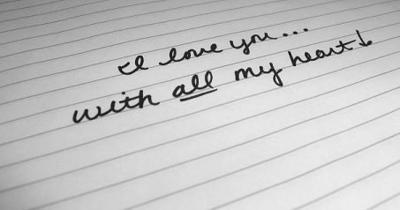 I love you...
with all my heart!